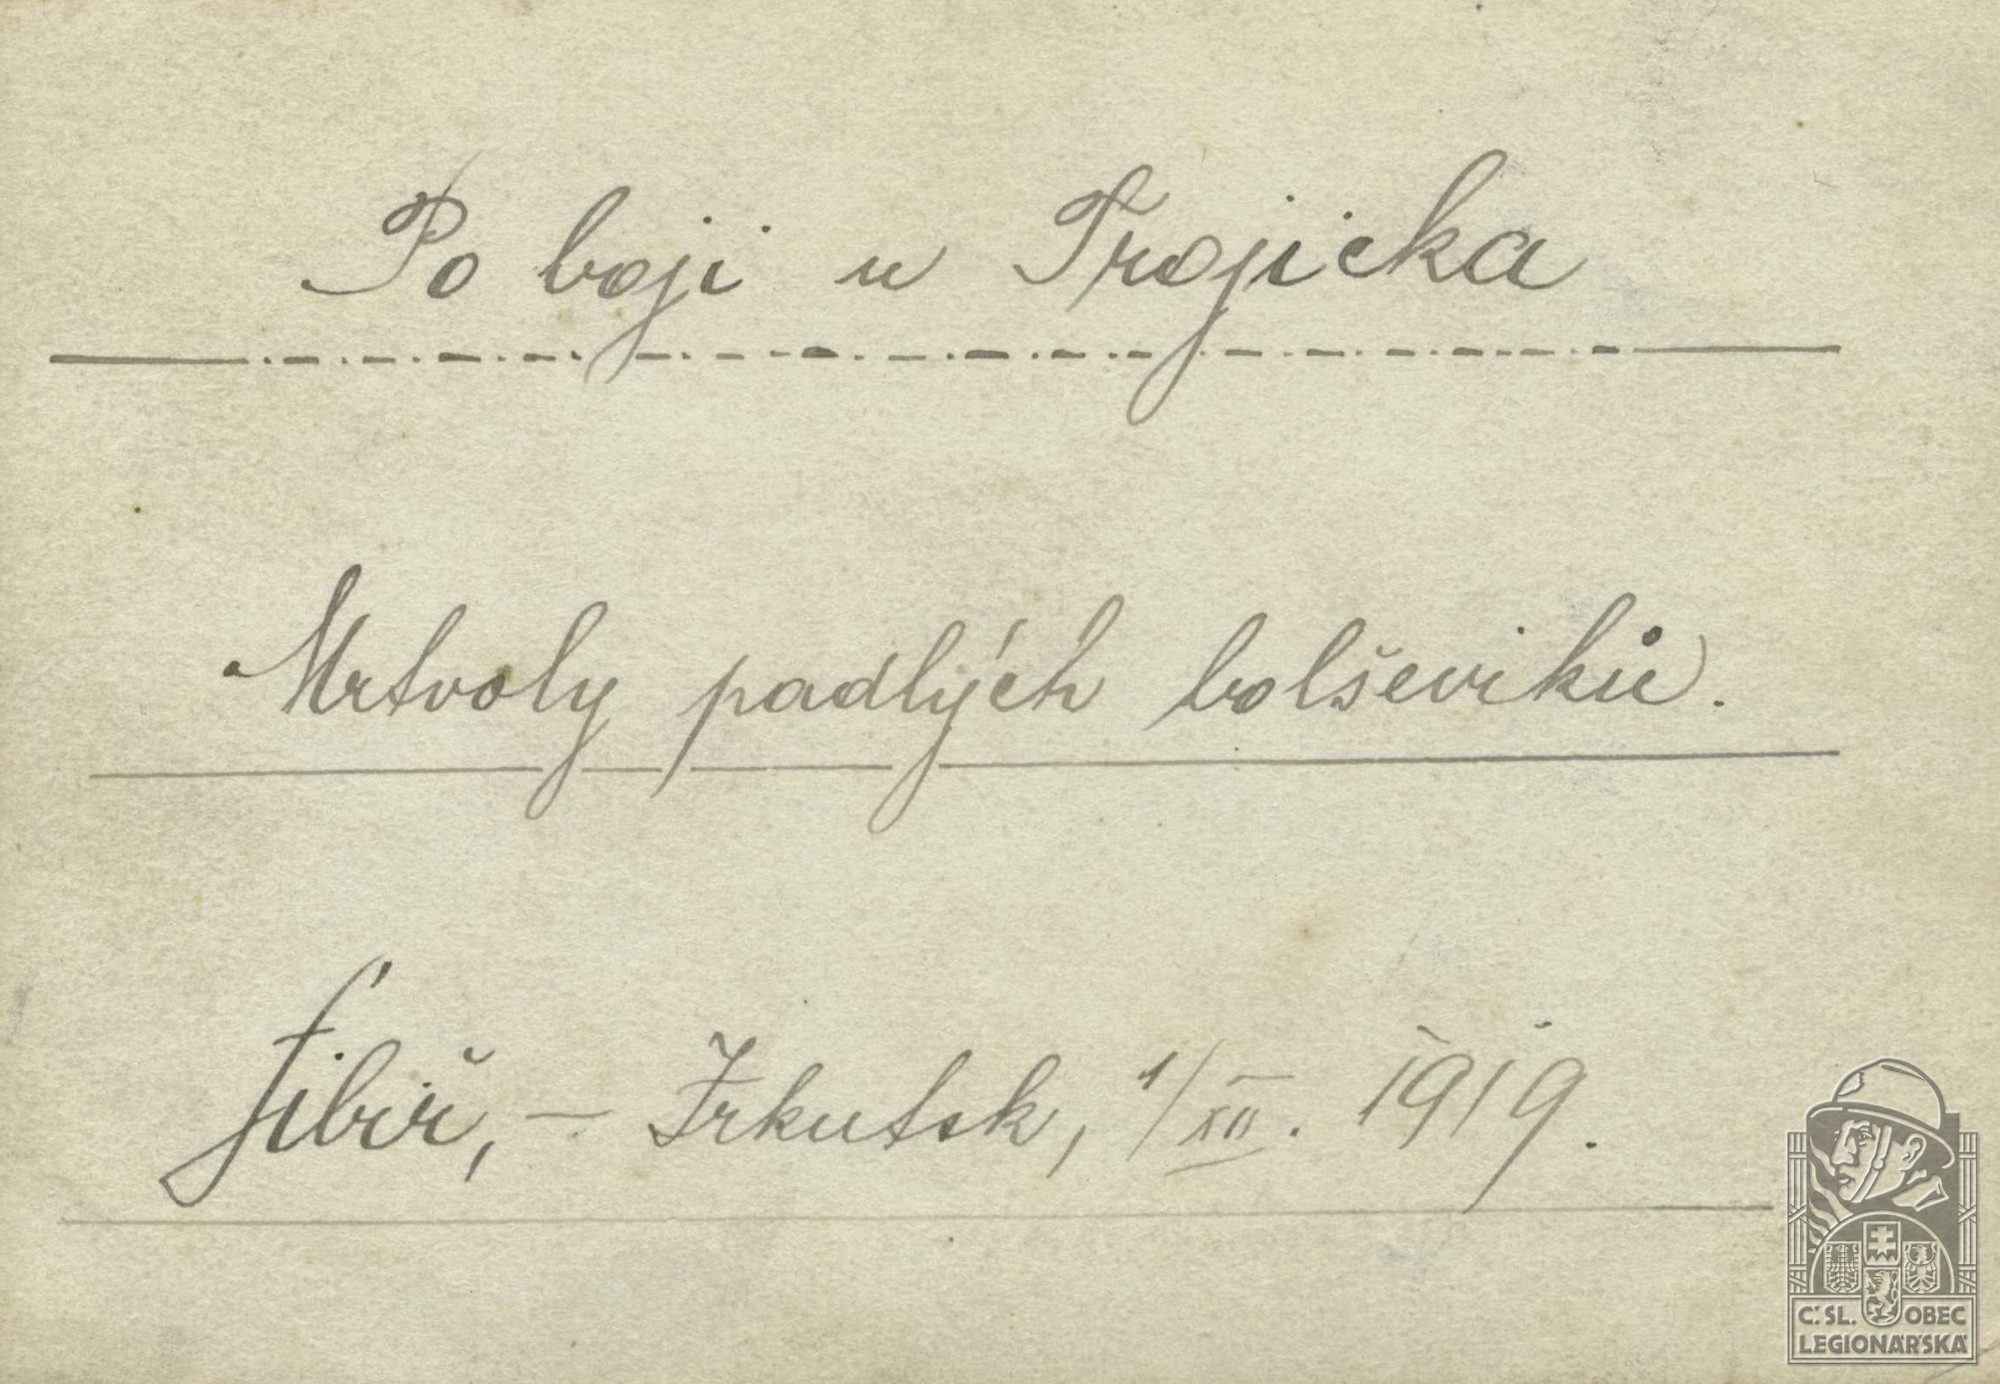 Po boji u Trojicka
Mrtvoly padlých bolševiků.
Sibiř, – Irkutsk, 1/XII. 1919.
Č.SL. OBEC
LEGIONÁŘSKÁ